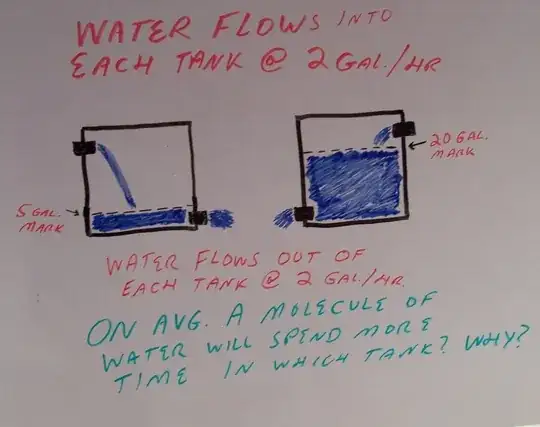 WATER FLOWS INTO
EACH TANK @ 2 GAL./HR
20 GAL.
MARK
5 GAL.
MARK
WATER FLOWS OUT OF
EACH TANK @ 2 GAL./HR.
ON AVG. A MOLECULE OF
WATER WILL SPEND MORE
TIME IN WHICH TANK? WHY?